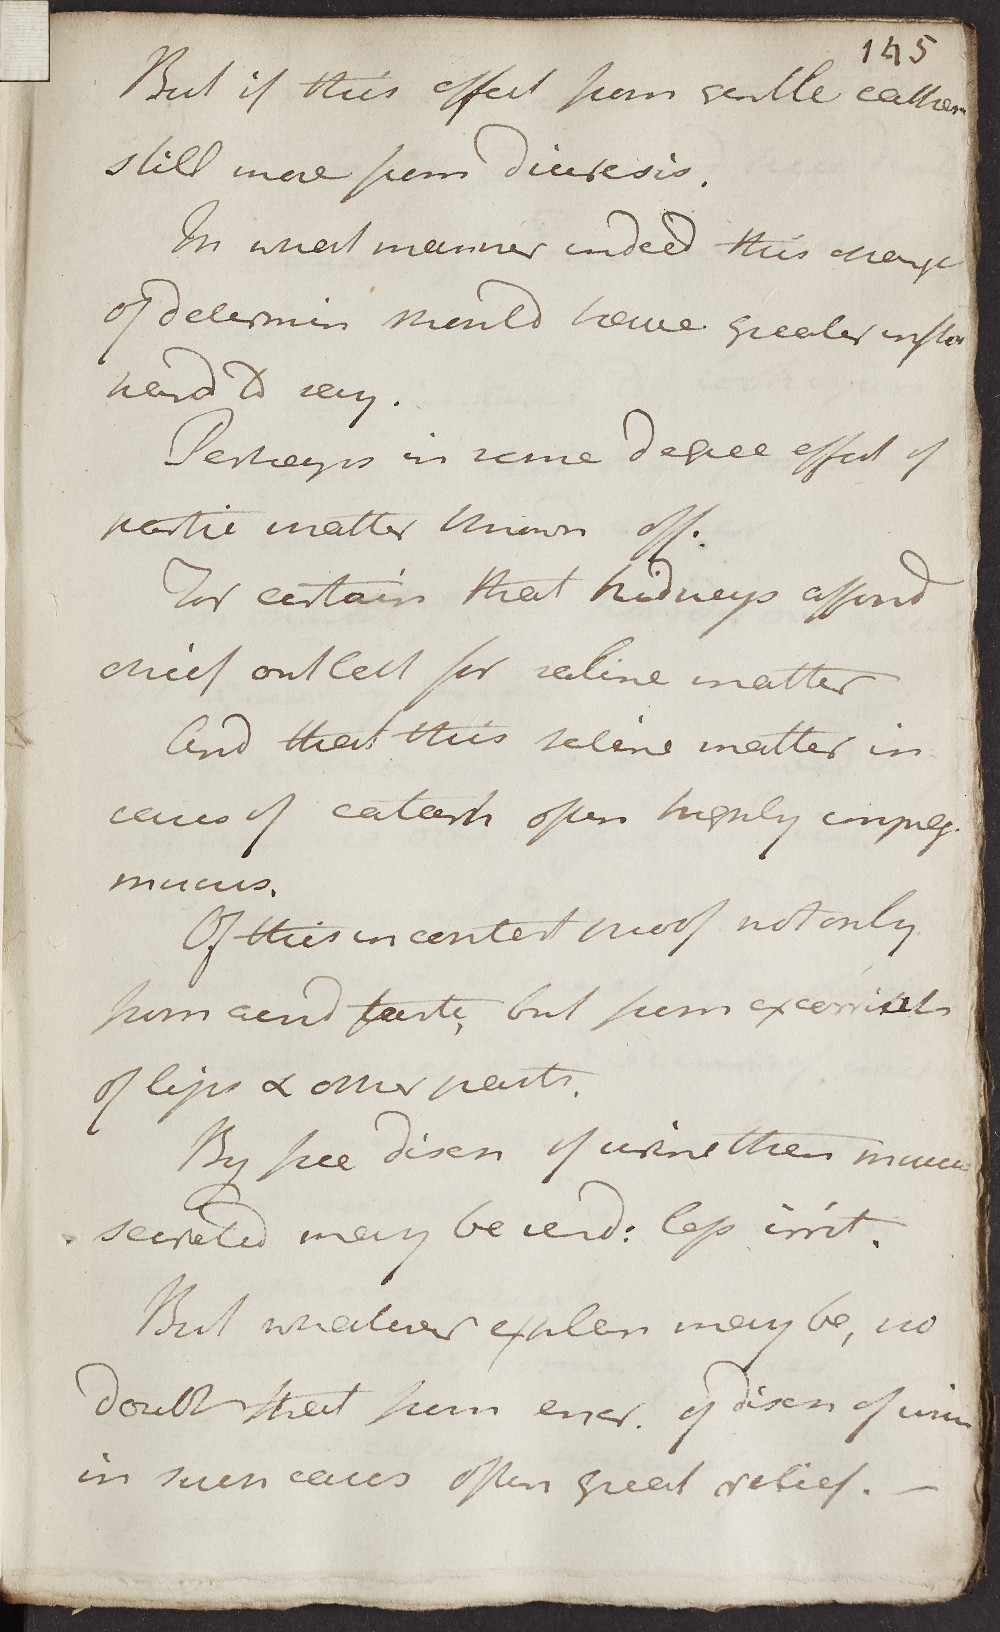 145
But if this effect from gentle cathar
still more from Diuresis.
In what manner indeed this change
of determin should have greater influ
hard to say.
Perhaps in some Degree effect of
partic matter thrown off.
For certain that kidneys afford
chief outlett for saline matter
And that this saline matter in
cases of catarrh often highly impreg.
mucus.
Of this incontest proof not only
from acrid taste, but from excoriats
of lips & other parts.
By free Disch of urine then mucus
secreted may be rend: less irrit.
But whatever explan may be, no
doubt that from encr. of disch of urin
in such cases often great relief. —